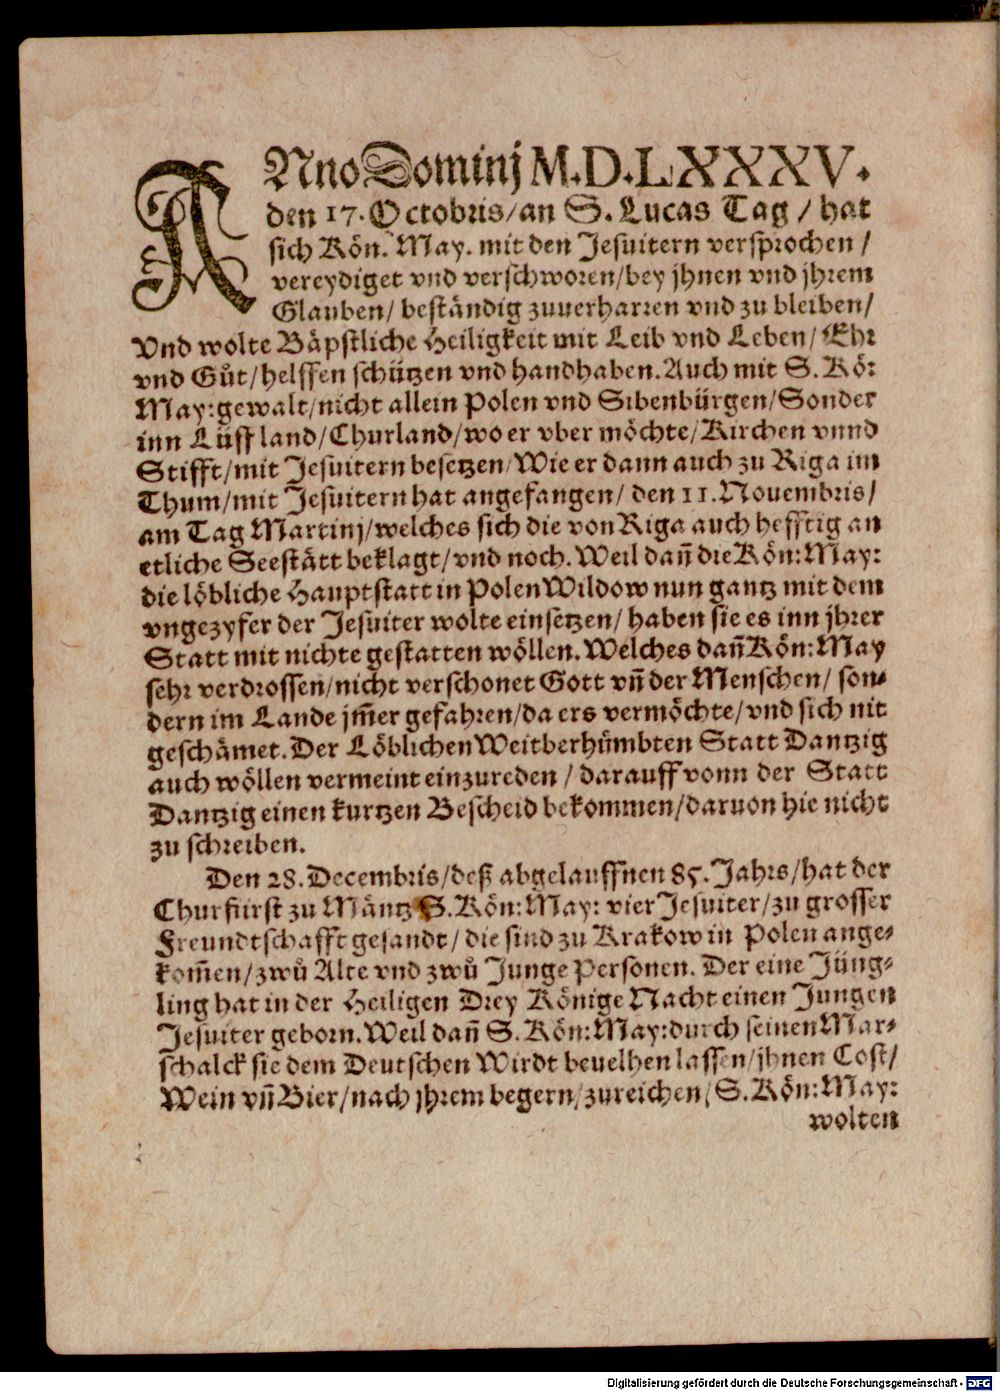 ANno Dominj M.D.LXXXV.
den 17. Octobris/an S. Lucas Tag / hat
sich Kön. May. mit den Jesuitern versprochen /
vereydiget vnd verschworen/bey jhnen vnd jhrem
Glauben/ beständig zuuerharren vnd zu bleiben/
Vnd wolte Bäpstliche Heiligkeit mit Leib vnd Leben/ Ehr
vnd Gůt/helffen schützen vnd handhaben. Auch mit S. Kö:
May: gewalt/nicht allein Polen vnd Sibenbürgen/Sonder
inn Lüffland/Churland/wo er vber möchte/Kirchen vnnd
Stifft/mit Jesuitern besetzen/Wie er dann auch zu Riga im
Thum/mit Jesuitern hat angefangen/ den 11. Nouembris/
am Tag Martinj/welches sich die von Riga auch hefftig an
etliche Seestätt beklagt/vnd noch. Weil dañ die Kön: May:
die löbliche Hauptstatt in Polen Wildow nun gantz mit dem
vngezyfer der Jesuiter wolte einsetzen/ haben sie es inn jhrer
Statt mit nichte gestatten wöllen. Welches dañ Kön: May
sehr verdrossen/nicht verschonet Gott vñ der Menschen/ son-
dern im Lande jm̃er gefahren/da ers vermöchte/vnd sich nit
geschämet. Der Löblichen Weitberhůmbten Statt Dantzig
auch wöllen vermeint einzureden / darauff vonn der Statt
Dantzig einen kurtzen Bescheid bekommen/daruon hie nicht
zu schreiben.
Den 28. Decembris/deß abgelauffnen 85. Jahrs/hat der
Churfürst zu Mäntz S. Kön: May: vier Jesuiter/zu grosser
Freundtschafft gesandt/ die sind zu Krakow in Polen ange-
kom̃en/zwů Alte vnd zwů Junge Personen. Der eine Jüng-
ling hat in der Heiligen Drey Könige Nacht einen Jungen
Jesuiter geborn. Weil dañ S. Kön: May: durch seinen Mar-
schalck sie dem Deutschen Wirdt beuelhen lassen/jhnen Cost/
Wein vñ Bier/nach jhrem begern/zureichen/ S. Kön: May:
wolten
Digitalisierung gefördert durch die Deutsche Forschungsgemeinschaft - DFG